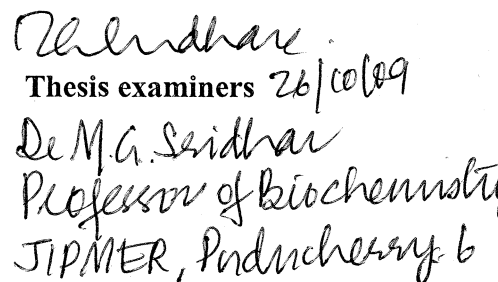 Thesis examiners 26/10/09
Dr M.G. Sridhar
Professor of Biochemist
JIPMER, Puducherry. 6